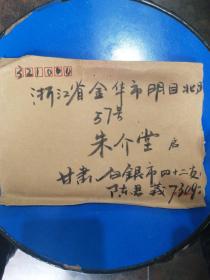 321000
浙江省金华市明月北路
57号
朱介堂 启
甘肃白银市四十二支
陈君義7309